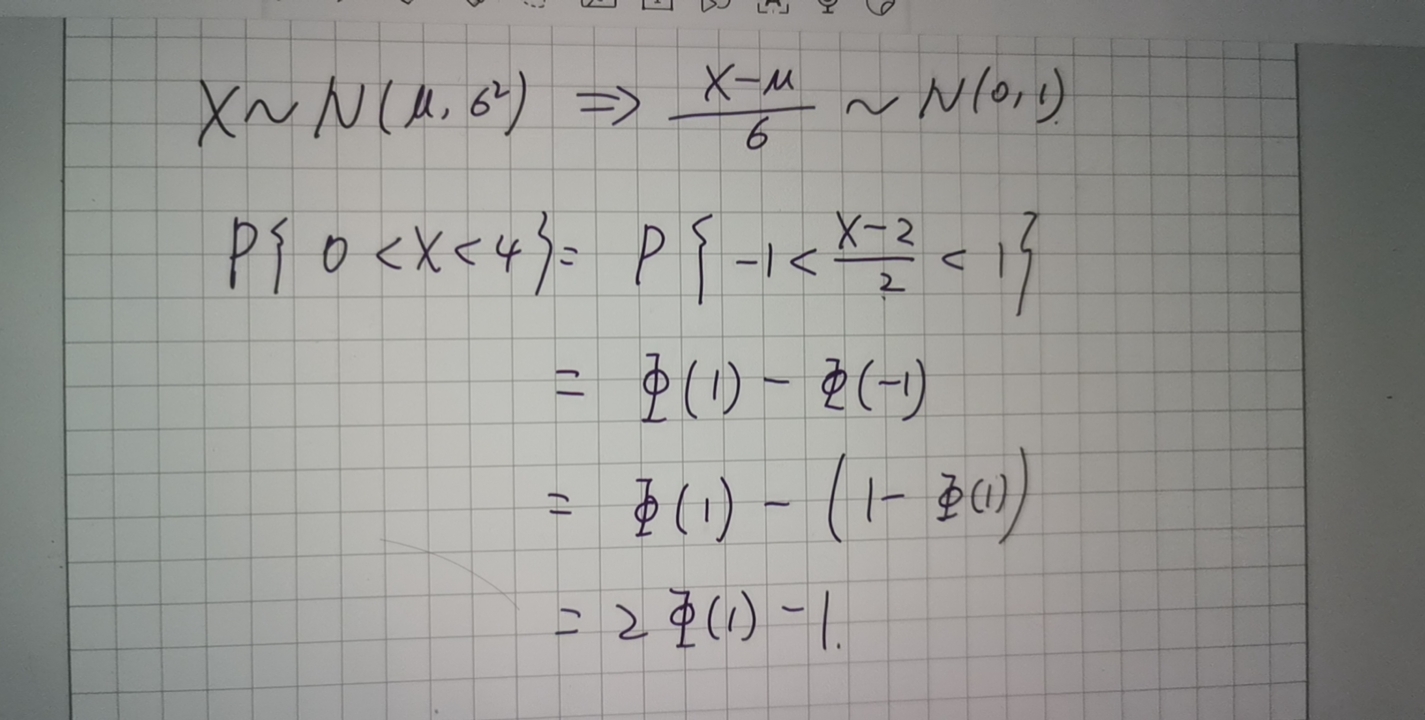 X ~ N(μ, σ²) ⇒ (X-μ)/σ ~ N(0,1)
P{ 0 < X < 4 } = P{ -1 < (X-2)/2 < 1 }
= Φ(1) - Φ(-1)
= Φ(1) - (1 - Φ(1))
= 2Φ(1) - 1.